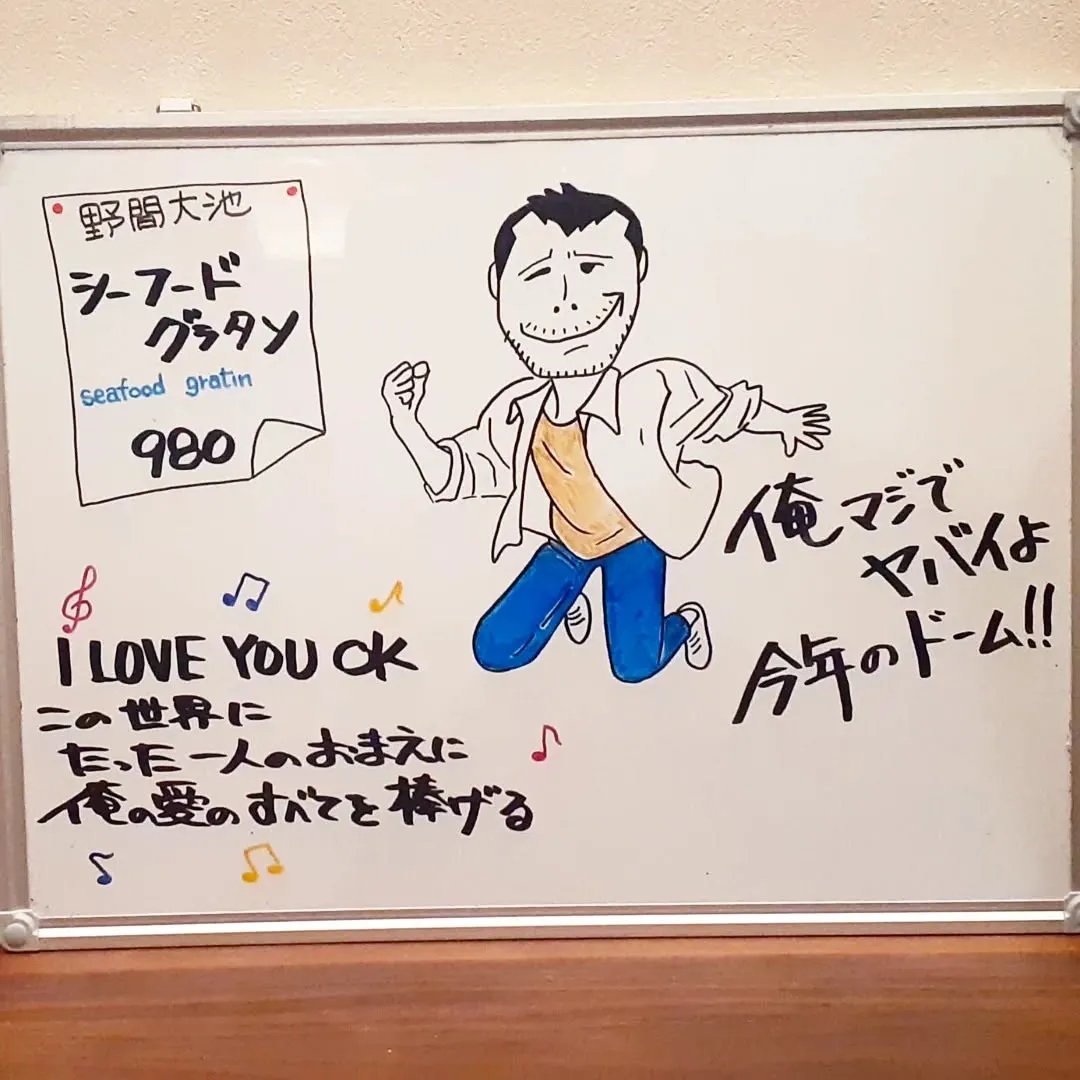 野間大池
シーフード
グラタン
seafood gratin
980
俺マジで
ヤバイよ
今年のドーム!!
I LOVE YOU OK
この世界に
たった一人のおまえに
俺の愛のすべてを棒げる